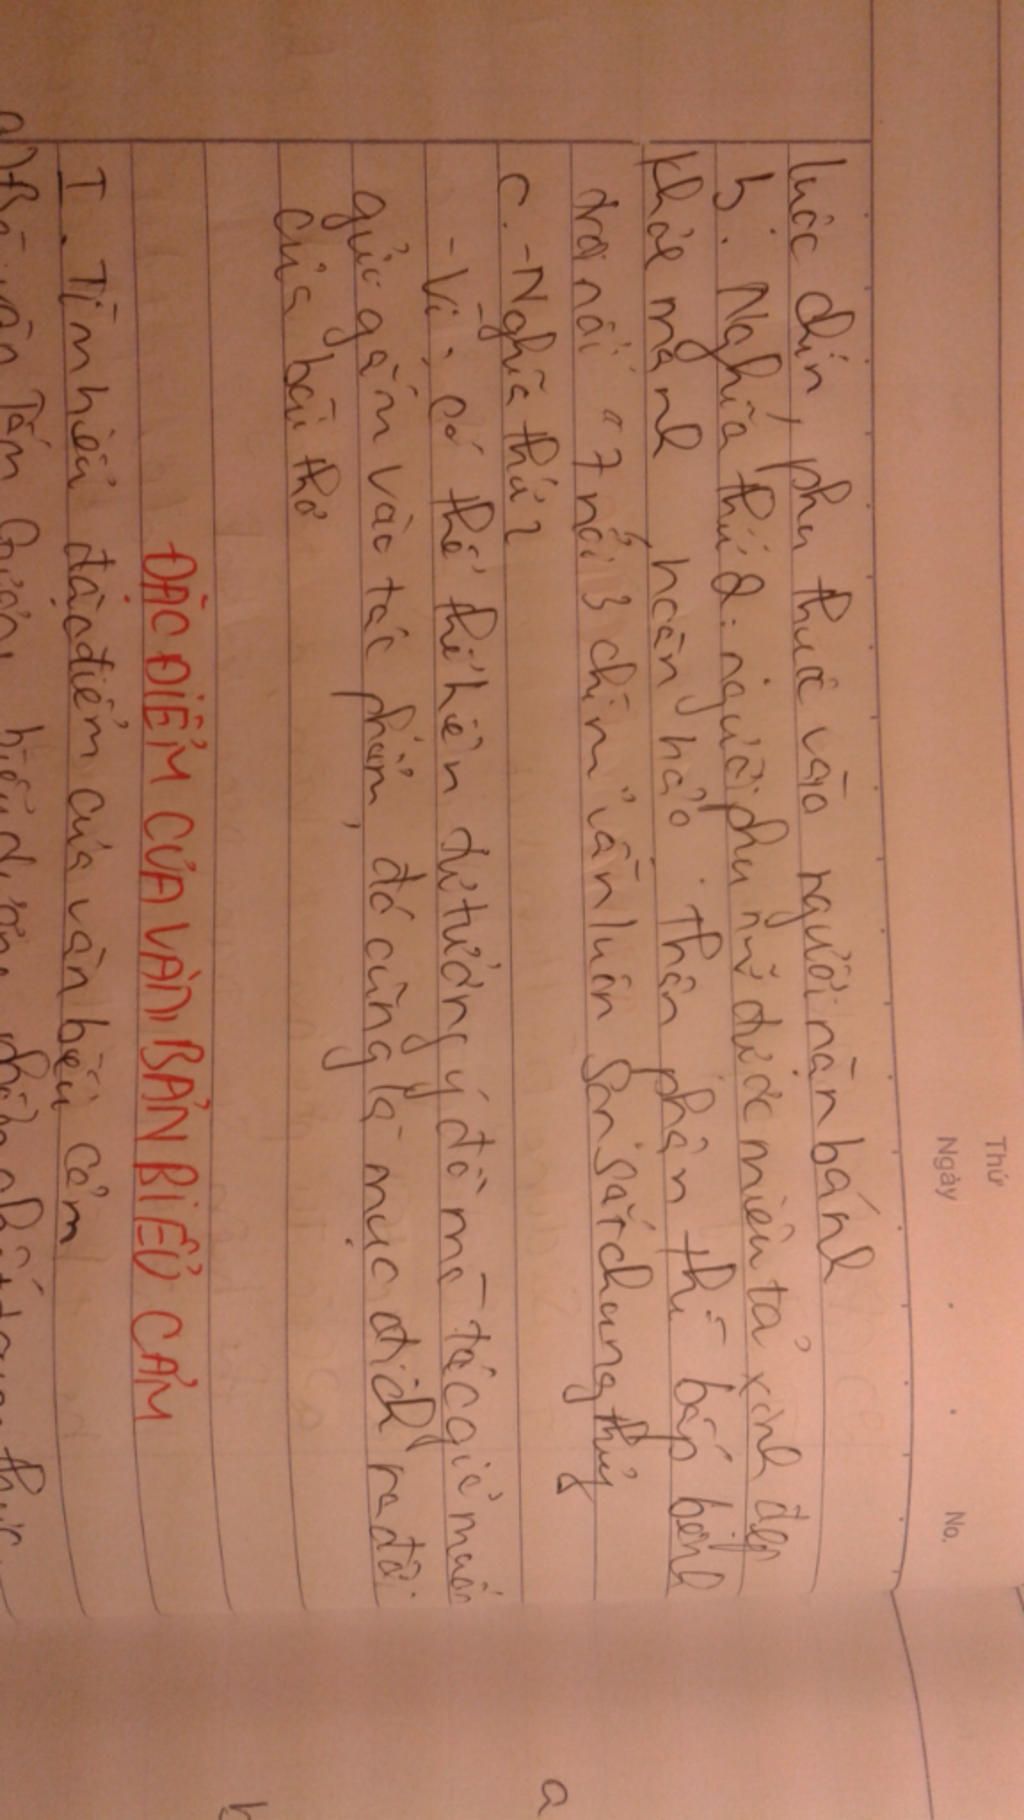 Thứ
Ngày
No.
luộc chín, phụ thuộc vào người nặn bánh
b. Nghĩa thứ 2: người phụ nữ được miêu tả xinh đẹp
khỏe mạnh hoàn hảo. thân phận thì bấp bênh
trôi nổi "7 nổi 3 chìm" vẫn luôn son sắt chung thủy
c. - Nghĩa thứ 2
- Vì, có thể thể hiện tư tưởng ý đồ mà tác giả muốn
gửi gắm vào tác phẩm, đó cũng là mục đích ra đời
của bài thơ
ĐẶC ĐIỂM CỦA VĂN BẢN BIỂU CẢM
I. Tìm hiểu đặc điểm của văn biểu cảm
a
b